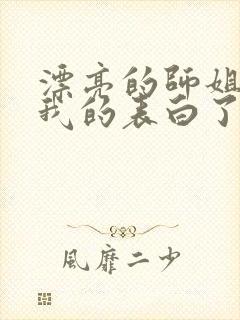 漂亮的師姐
我的表白了
風靡二少